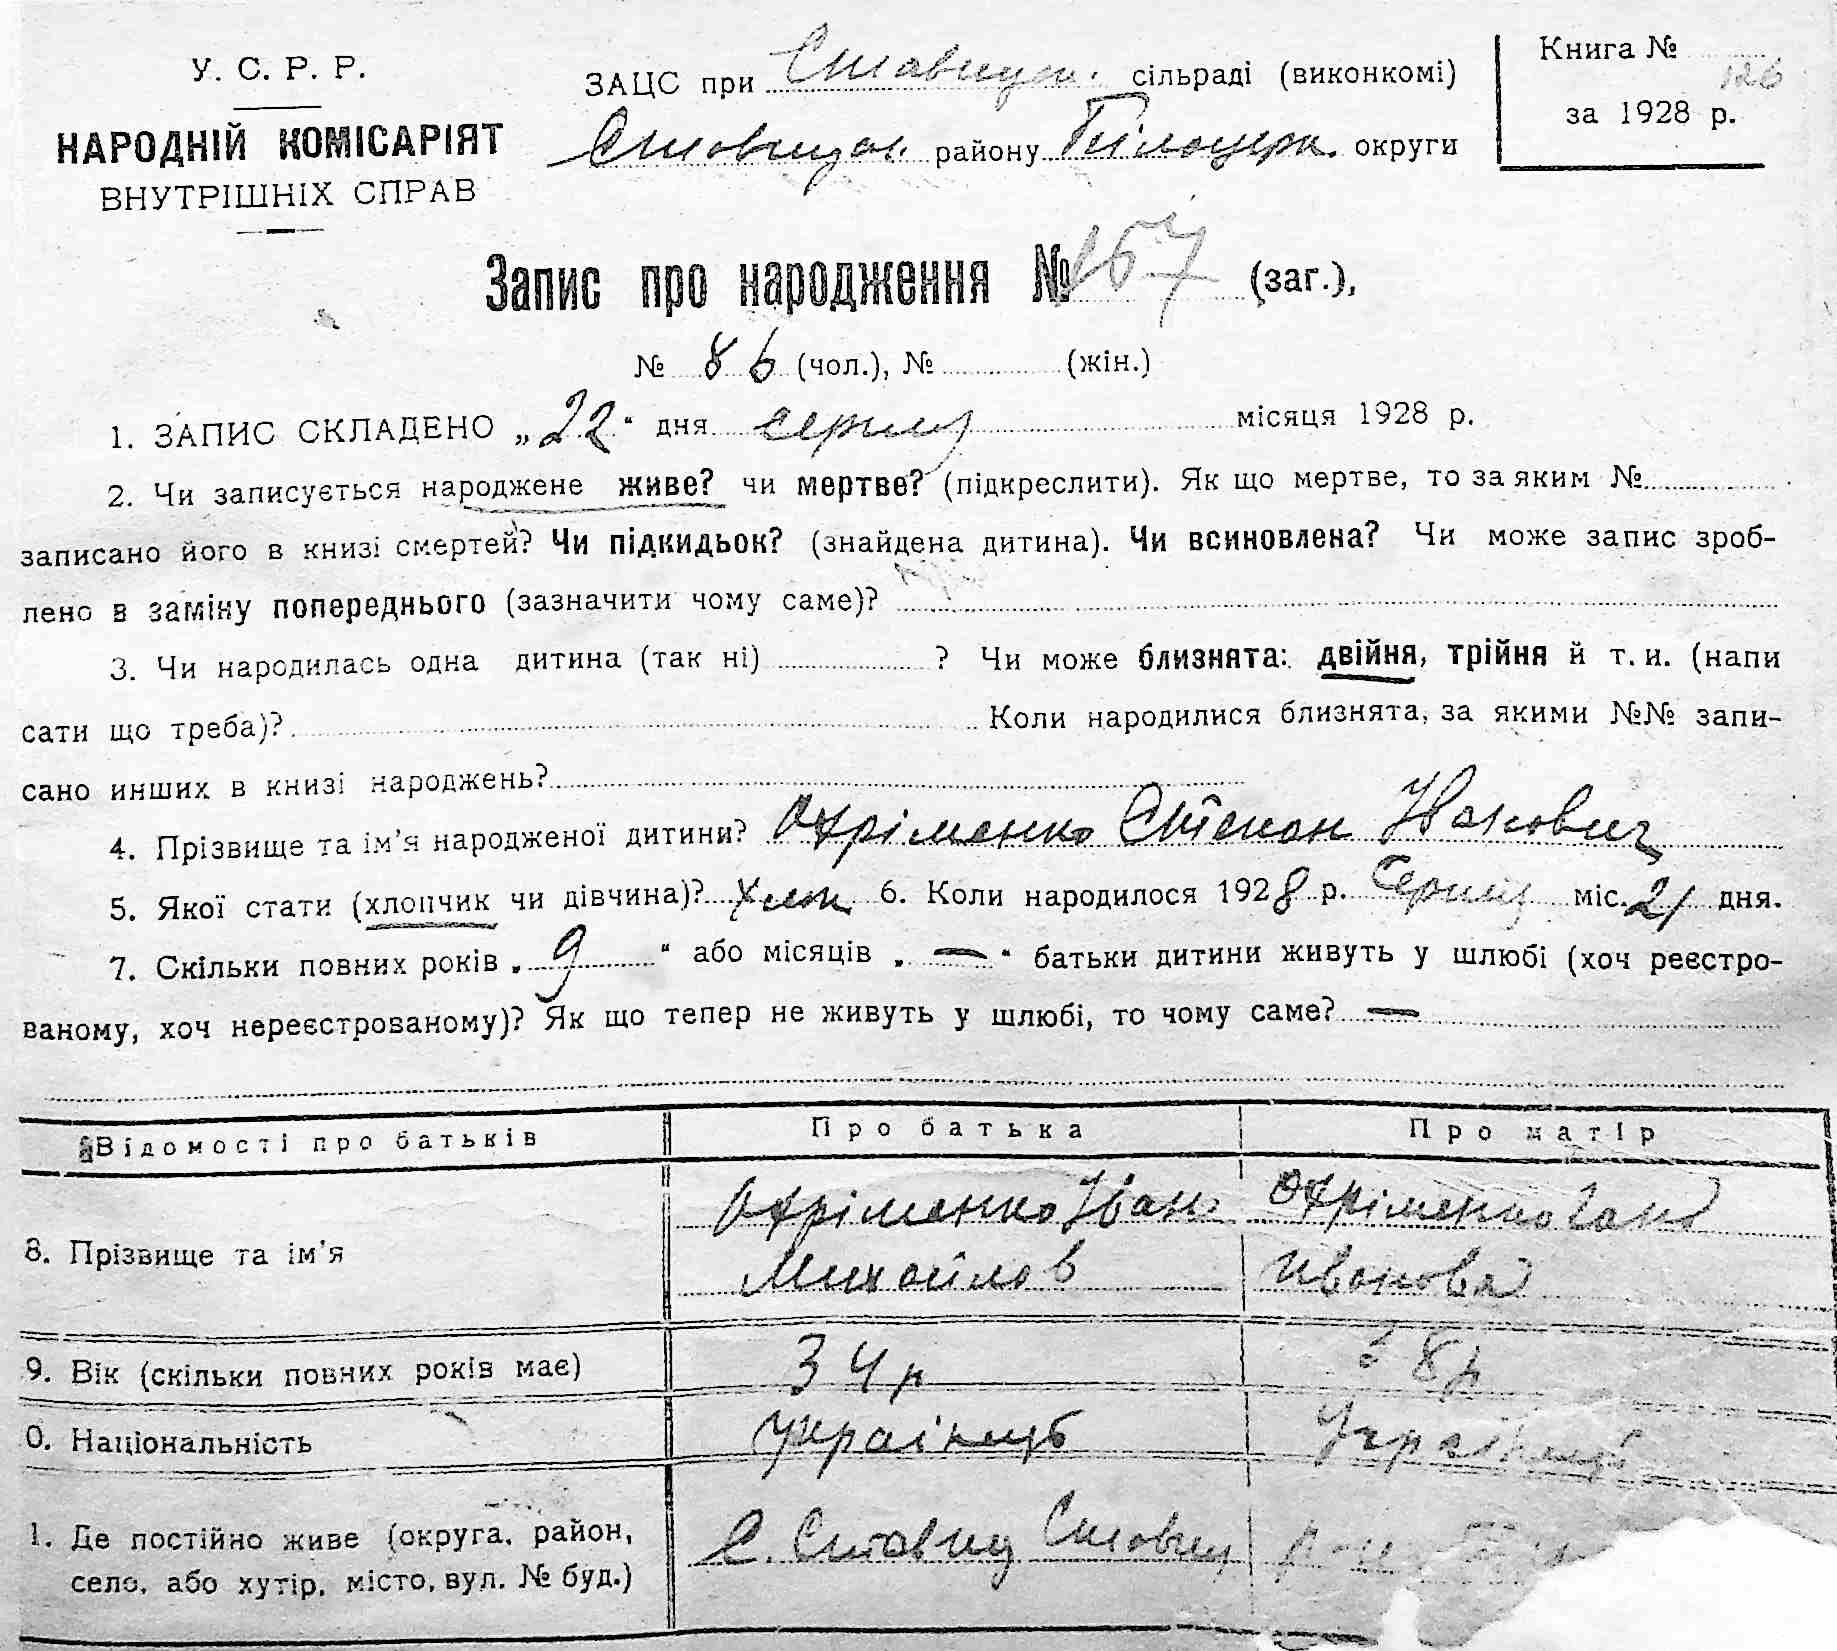 У. С. Р. Р.
НАРОДНІЙ КОМІСАРІЯТ
ВНУТРІШНІХ СПРАВ
ЗАЦС при Ставищан. сільраді (виконкомі)
Ставищан. району Білоцерк. округи
Книга № 126
за 1928 р.
Запис про народження № 157 (заг.),
№ 86 (чол.), № (жін.)
1. ЗАПИС СКЛАДЕНО „22“ дня серпня місяця 1928 р.
2. Чи записується народжене живе? чи мертве? (підкреслити). Як що мертве, то за яким №
записано його в книзі смертей? Чи підкидьок? (знайдена дитина). Чи всиновлена? Чи може запис зроб-
лено в заміну попереднього (зазначити чому саме)?
3. Чи народилась одна дитина (так ні) ? Чи може близнята: двійня, трійня й т. и. (напи
сати що треба)? Коли народилися близнята, за якими №№ запи-
сано инших в книзі народжень?
4. Прізвище та ім'я народженої дитини? Охріменко Степан Іванович
5. Якої стати (хлопчик чи дівчина)? Хлоп 6. Коли народилося 1928 р. Серпня міс. 21 дня.
7. Скільки повних років „ 9 “ або місяців „ — “ батьки дитини живуть у шлюбі (хоч реєстро-
ваному, хоч нереєстрованому)? Як що тепер не живуть у шлюбі, то чому саме? —
Відомості про батьків Про батька Про матір
8. Прізвище та ім'я Охріменко Іван Охріменко Ганна
Михайлов Иванова
9. Вік (скільки повних років має) 34 р 38 р
0. Національність Українець Українець
1. Де постійно живе (округа, район, С. Ставищ Ставищ
село, або хутір, місто, вул. № буд.)